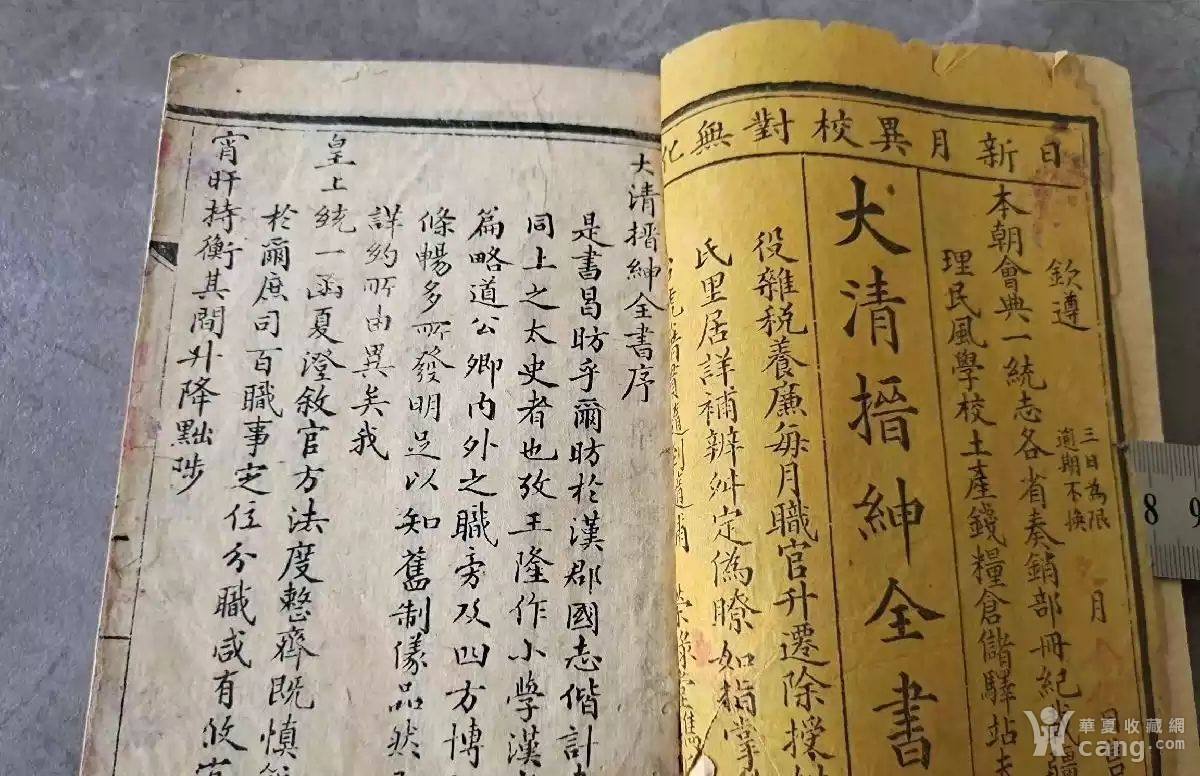 日新月異校對無訛
欽遵
三日為限
逾期不換
月
日
本朝會典一統志各省奏銷部冊紀載疆
理民風學校土產錢糧倉儲驛站夫
大清搢紳全書
役雜稅養廉每月職官升遷除授
氏里居詳補辨舛定偽瞭如指掌
榮錄堂
大清搢紳全書序
是書昌昉乎爾昉於漢郡國志偕計
同上之太史者也攷王隆作小學漢
篇略道公卿內外之職旁及四方博
條暢多所發明足以知舊制儀品然
詳約所由異矣我
皇上統一函夏澄敘官方法度整齊既慎
於爾庶司百職事定位分職咸有攸
宵旰持衡其間升降黜陟
8 9
華夏收藏網
cang.com